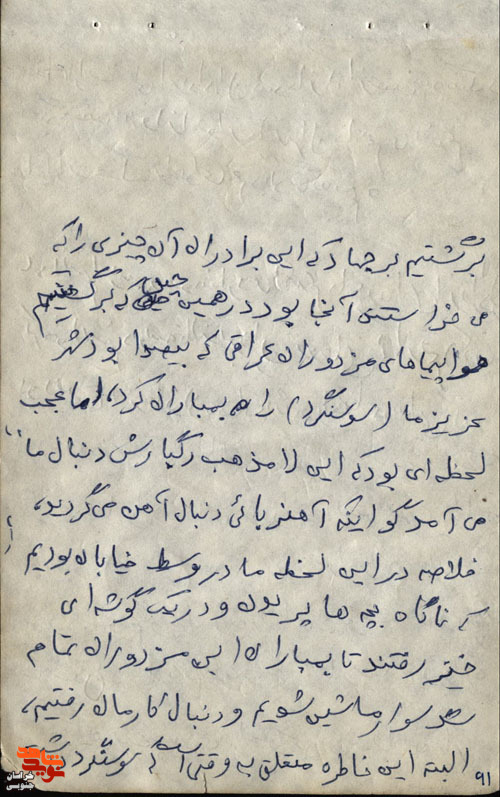 برگشتیم بر جهاد که این برادران آن چیزی را که
می خواستند آنجا بود در همین که برگشتیم
هواپیماهای مزدوران عراقی که بیصدا بود شهر
عزیز ما (سوسنگرد) را بمباران کرد، اما عجب
لحظه ای بود که این لامذهب رگبارش دنبال ما
می آمد گو اینکه آهنربائی دنبال آهن می گردید،
خلاصه در این لحظه ما در وسط خیابان بودیم
که ناگاه بچه ها پریدن و در یک گوشه ای
خیز رفتند تا بمباران این مزدوران تمام
شد سوار ماشین شویم و دنبال کارمان رفتیم،
البته این خاطره متعلق به وقتی است که سوسنگرد
۹۱
نوید شاهد
خراسان جنوبی